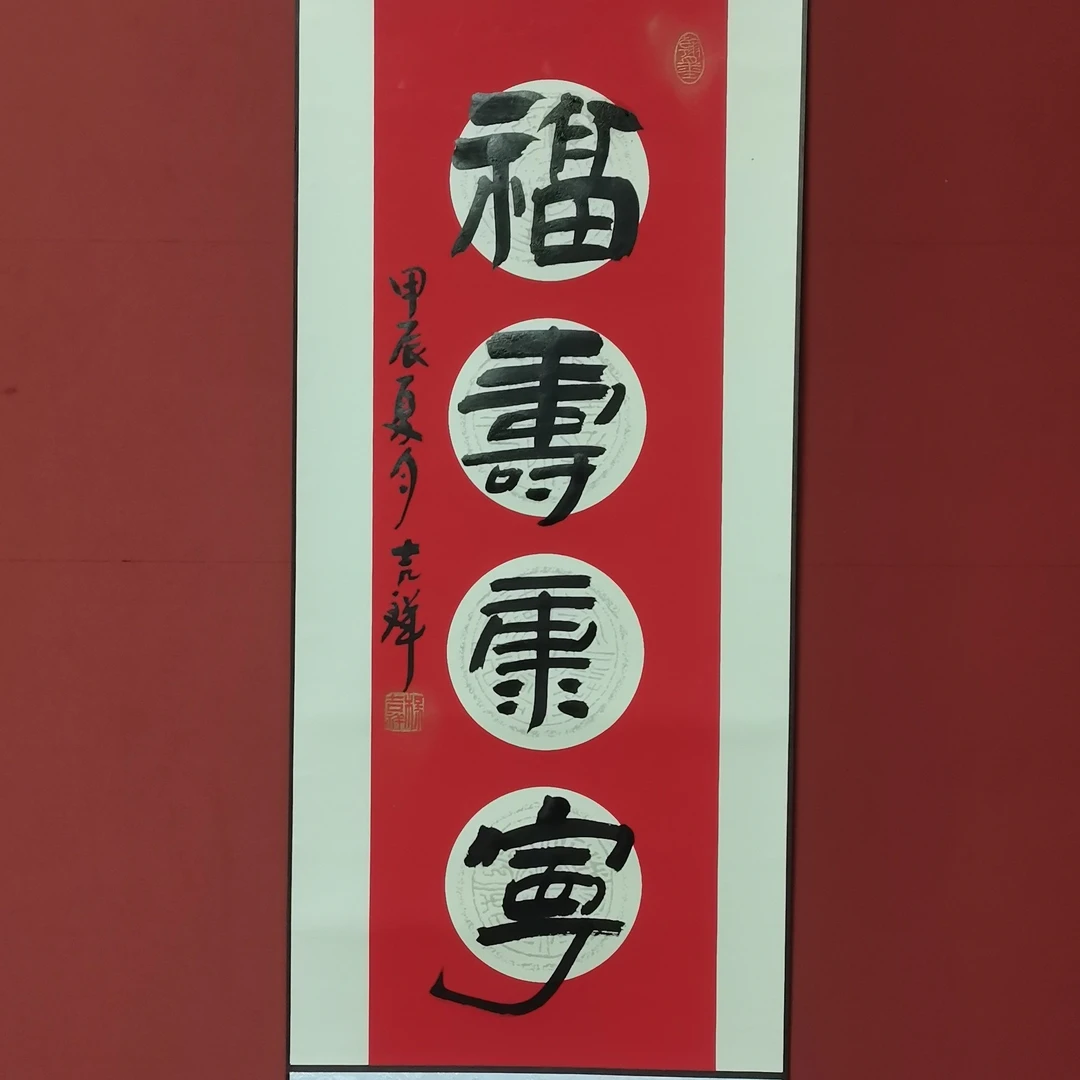 福壽康寧
甲辰夏月 吉祥